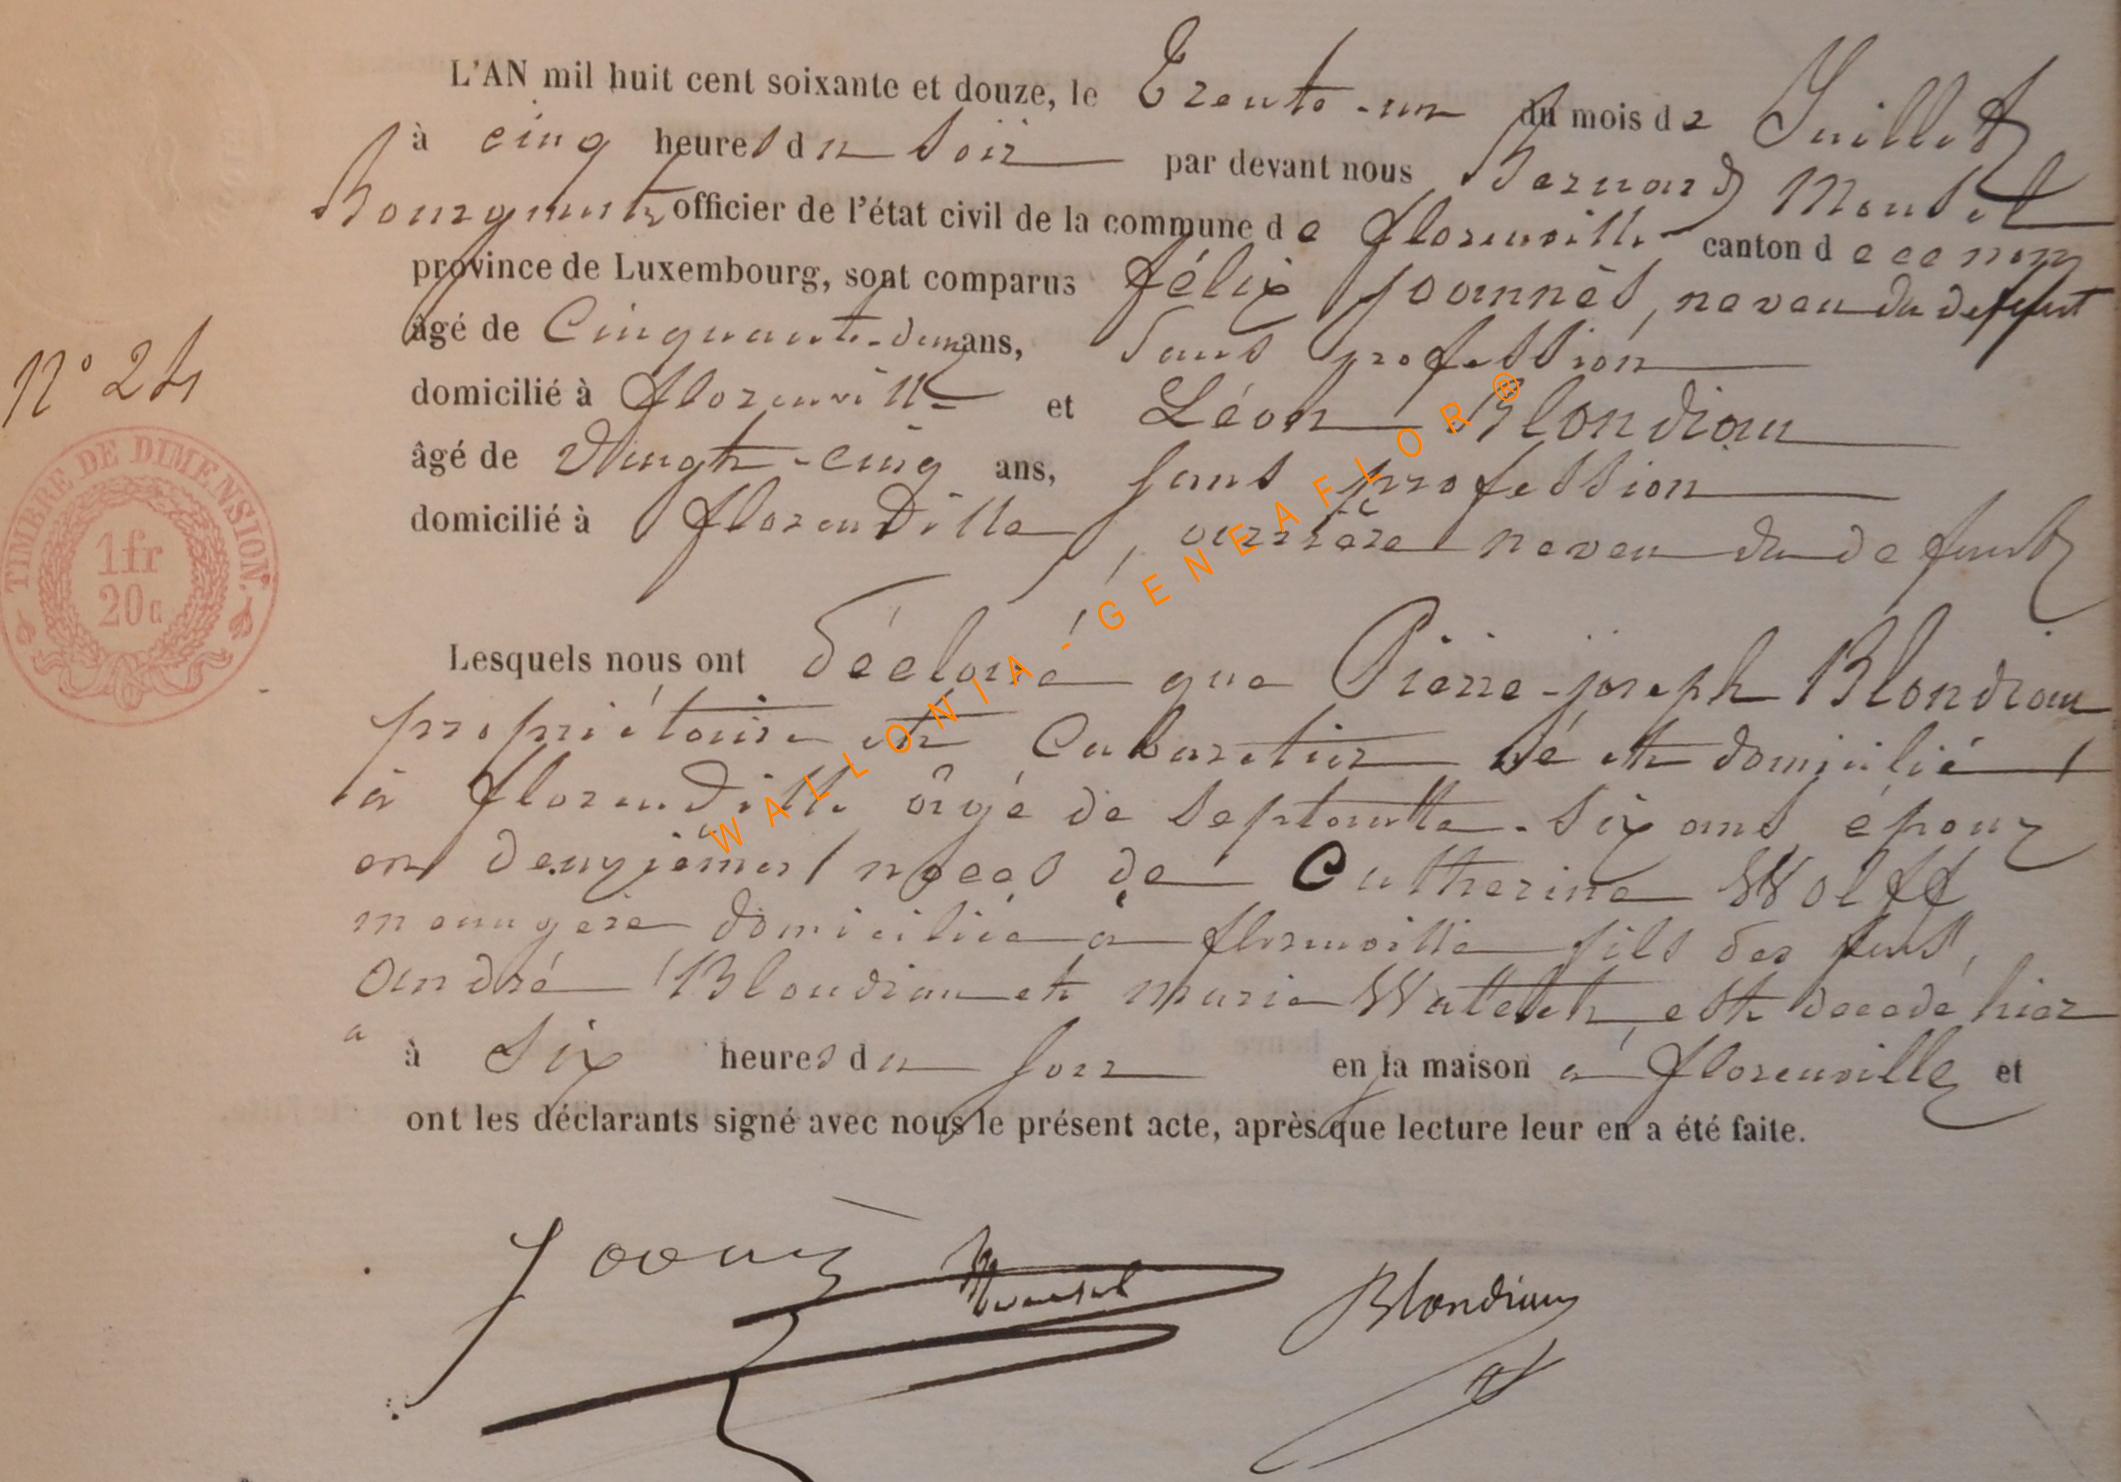 L'AN mil huit cent soixante et douze, le Trente-un du mois de Juillet
à cinq heures du soir par devant nous Bernard Mousel
Bourgmestre officier de l'état civil de la commune de florenville canton de ce nom
province de Luxembourg, sont comparus félix Joannès, neveu du defunt
âgé de Cinquante-deux ans, sans profession
domicilié à florenville et Léon Blondiau
âgé de Vingt-cinq ans, sans profession
domicilié à florenville, arrière neveu du defunt
N° 24
TIMBRE DE DIMENSION.
1fr
20c
Lesquels nous ont déclaré que Pierre-joseph Blondiau
propriétaire et Cabaretier né et domicilié
à florenville âgé de septante-six ans, époux
en deuxièmes noces de Catherine Wolff
menagère domiciliée a florenville fils des
André Blondiau et marie Watelet, est decedé hier
a
à six heures du soir en la maison a florenville et
ont les déclarants signé avec nous le présent acte, après que lecture leur en a été faite.
Joannès Mousel Blondiau
WALLONIA-GENEAFLOR®